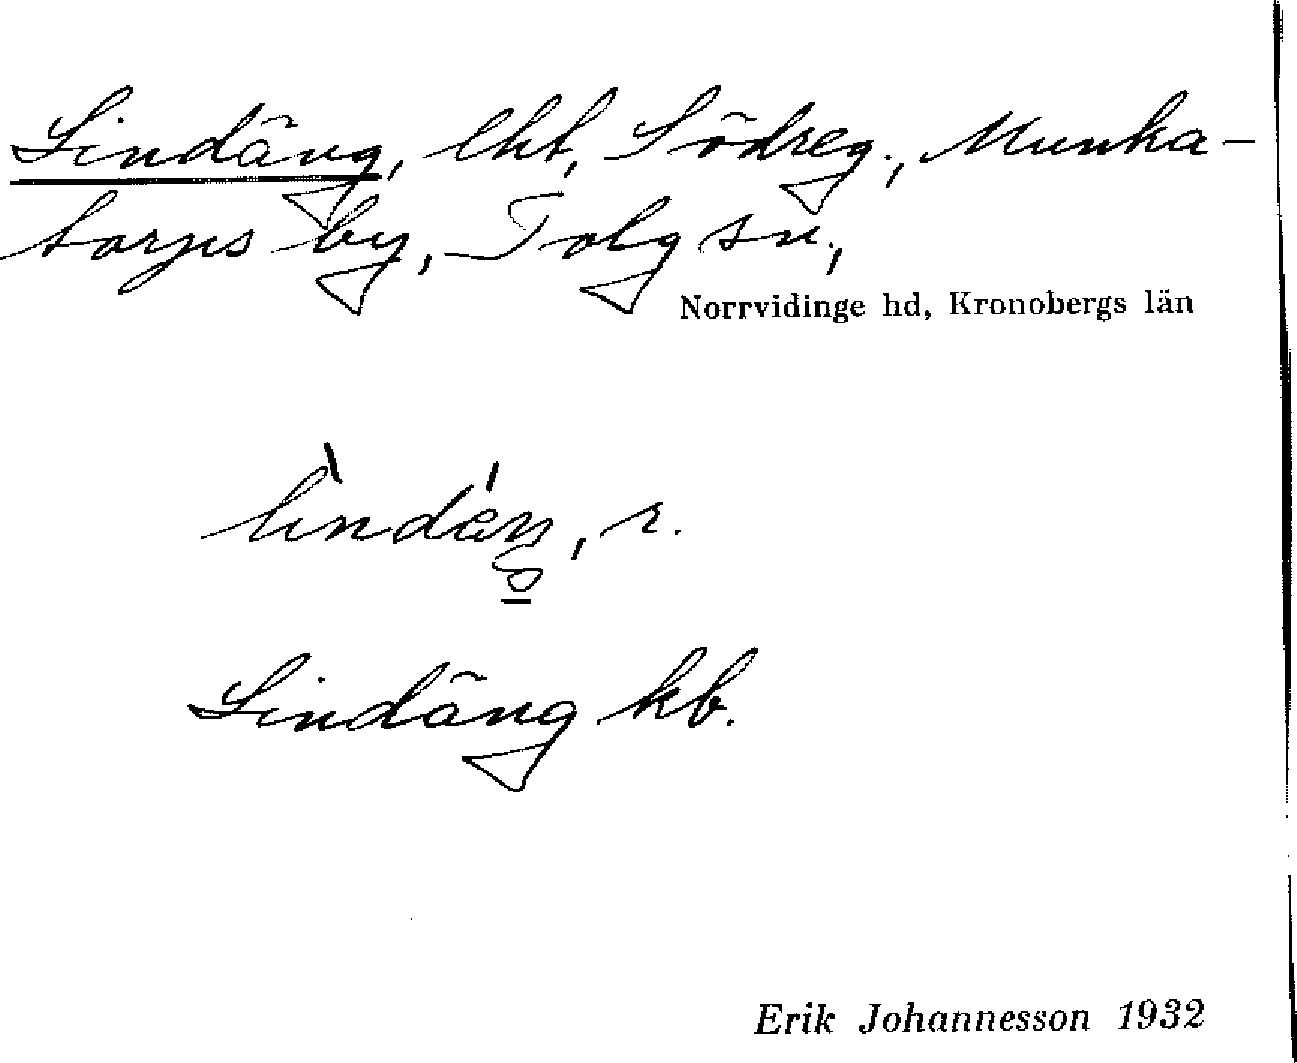 Lindäng, lht, Södreg., Munka-
torps by, Tolg sn,
Norrvidinge hd, Kronobergs län
r.
Lindäng kb.
Erik Johannesson 1932